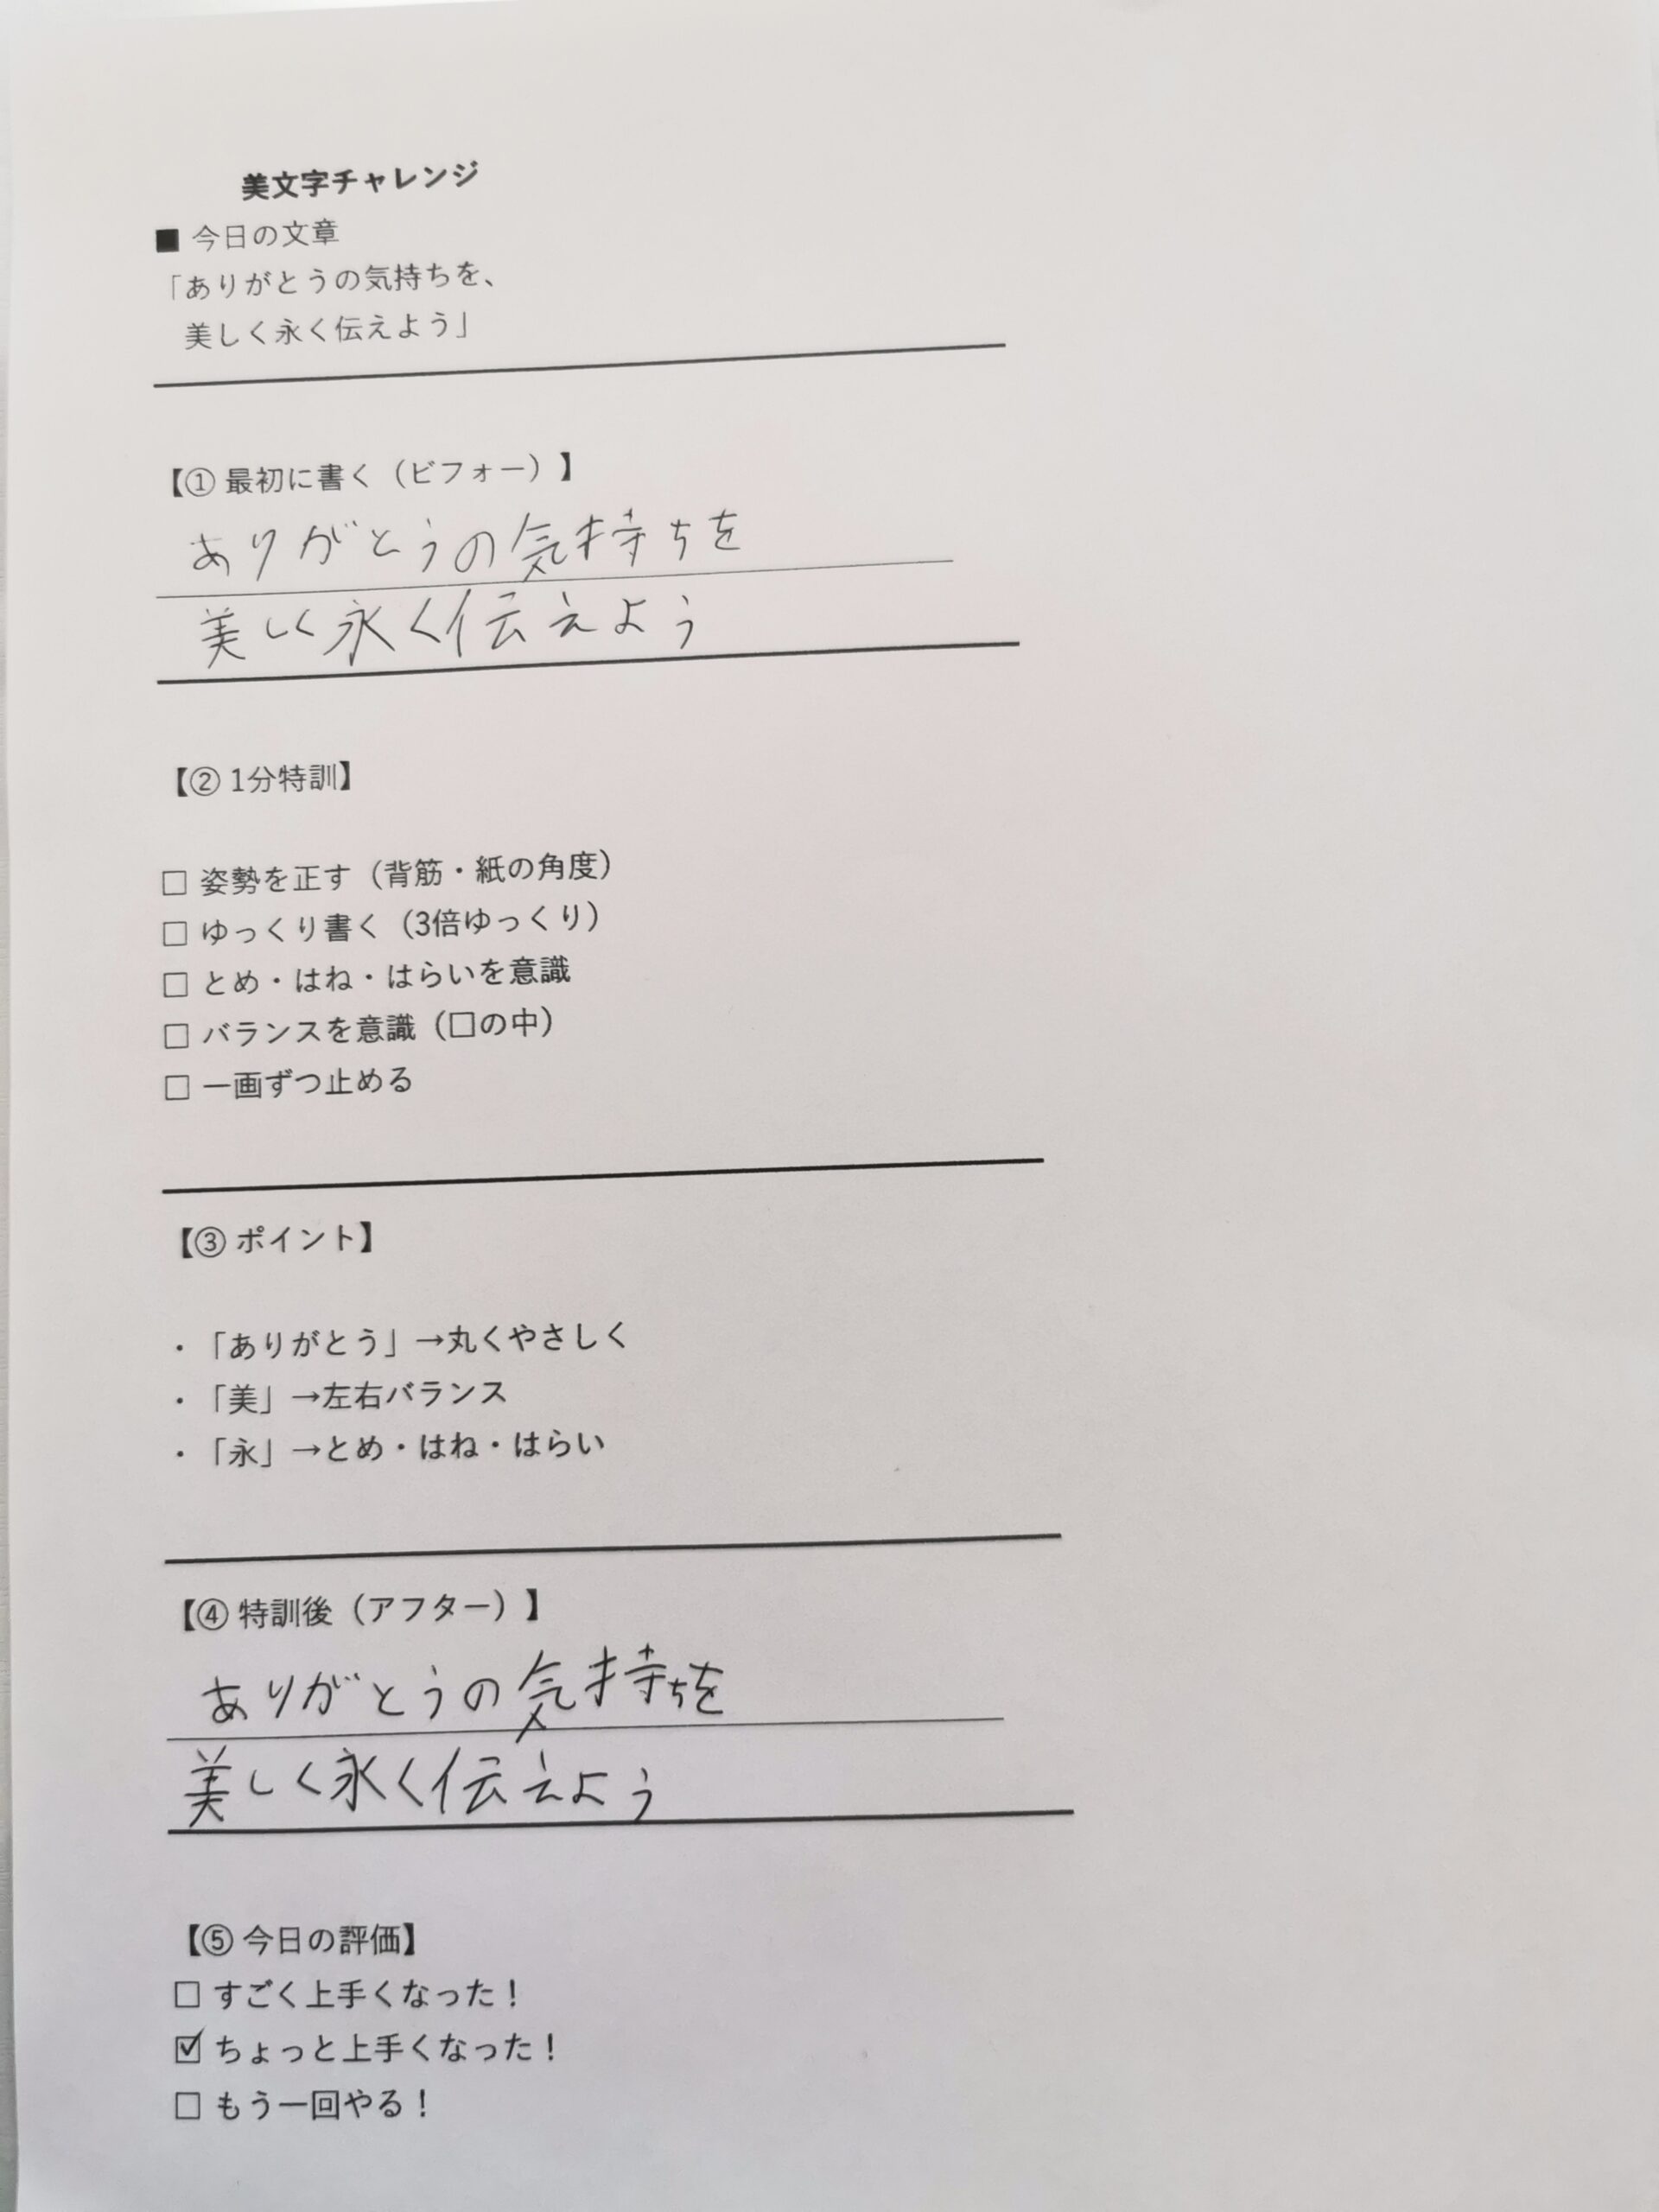 美文字チャレンジ
■ 今日の文章
「ありがとうの気持ちを、
美しく永く伝えよう」
【① 最初に書く（ビフォー）】
ありがとうの気持ちを
美しく永く伝えよう
【② 1分特訓】
□ 姿勢を正す（背筋・紙の角度）
□ ゆっくり書く（3倍ゆっくり）
□ とめ・はね・はらいを意識
□ バランスを意識（□の中）
□ 一画ずつ止める
【③ ポイント】
・「ありがとう」→丸くやさしく
・「美」→左右バランス
・「永」→とめ・はね・はらい
【④ 特訓後（アフター）】
ありがとうの気持ちを
美しく永く伝えよう
【⑤ 今日の評価】
□ すごく上手くなった！
☑ ちょっと上手くなった！
□ もう一回やる！